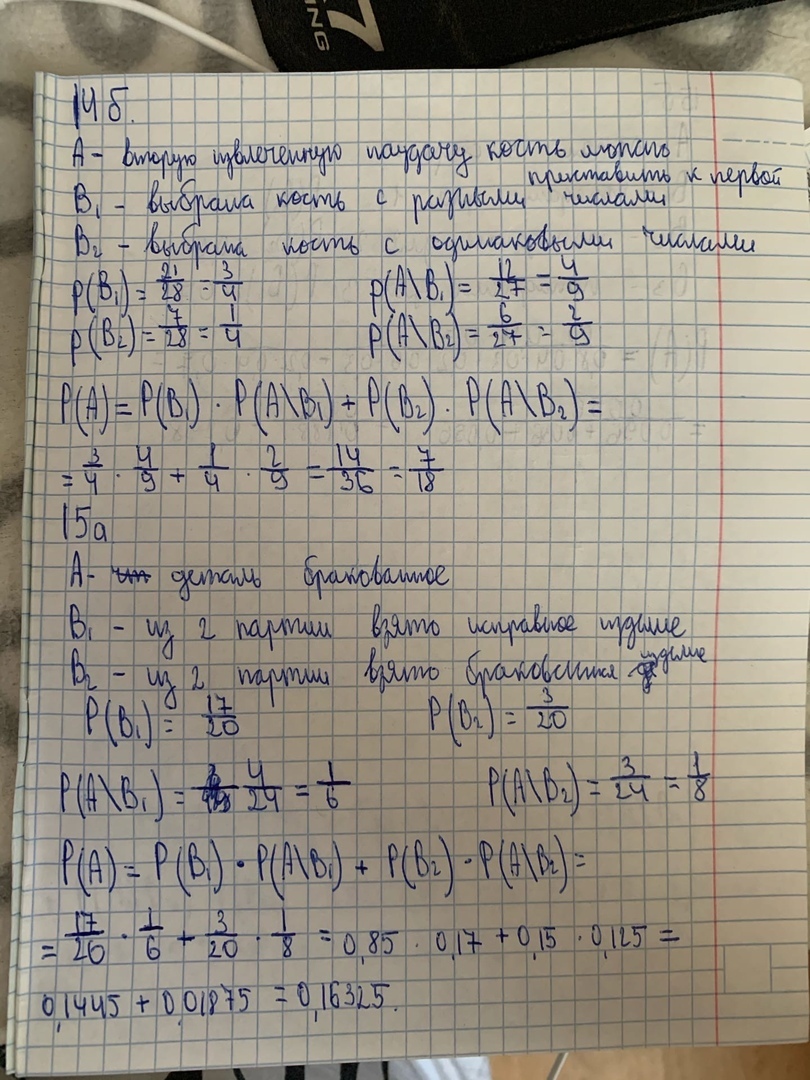 7
ING
14б.
А - вторую извлеченную наудачу кость можно
приставить к первой
B₁ - выбрана кость с разными числами
B₂ - выбрана кость с одинаковыми числами
P(B₁) = 21/28 = 3/4 P(A\B₁) = 12/27 = 4/9
P(B₂) = 7/28 = 1/4 P(A\B₂) = 6/27 = 2/9
P(A) = P(B₁) · P(A\B₁) + P(B₂) · P(A\B₂) =
= 3/4 · 4/9 + 1/4 · 2/9 = 14/36 = 7/18
15а
А - деталь бракованное
B₁ - из 2 партии взято исправное изделие
B₂ - из 2 партии взято бракованная изделие
P(B₁) = 17/20 P(B₂) = 3/20
P(A\B₁) = 4/24 = 1/6 P(A\B₂) = 3/24 = 1/8
P(A) = P(B₁) · P(A\B₁) + P(B₂) · P(A\B₂) =
= 17/20 · 1/6 + 3/20 · 1/8 = 0,85 · 0,17 + 0,15 · 0,125 =
0,1445 + 0,01875 = 0,16325.